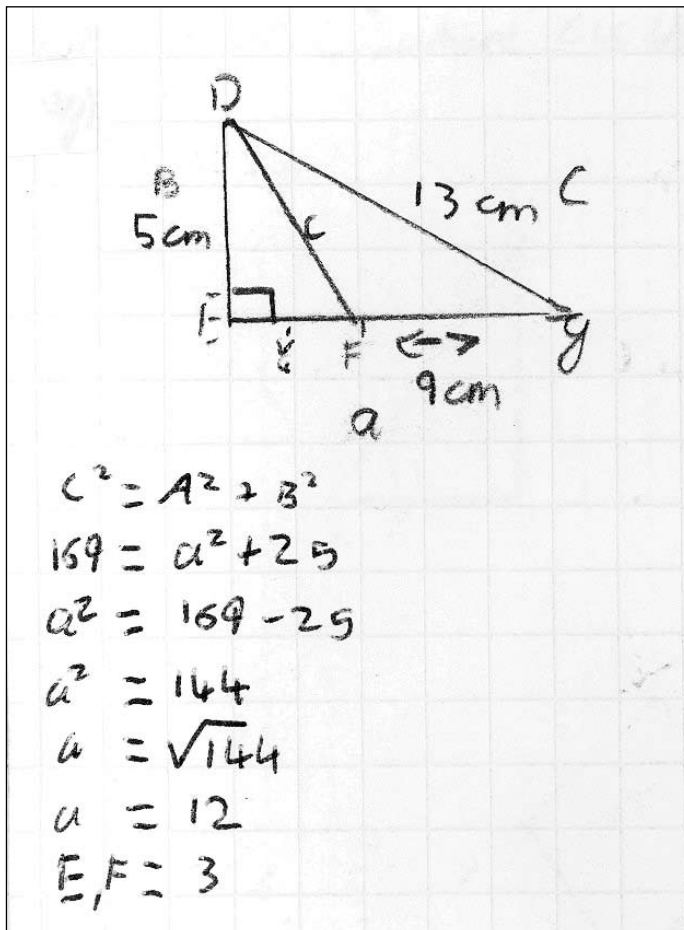 D
B
5cm
c
13 cm C
E
F
y
9cm
a
C² = A² + B²
169 = a² + 25
a² = 169 - 25
a² = 144
a = √144
a = 12
E,F = 3